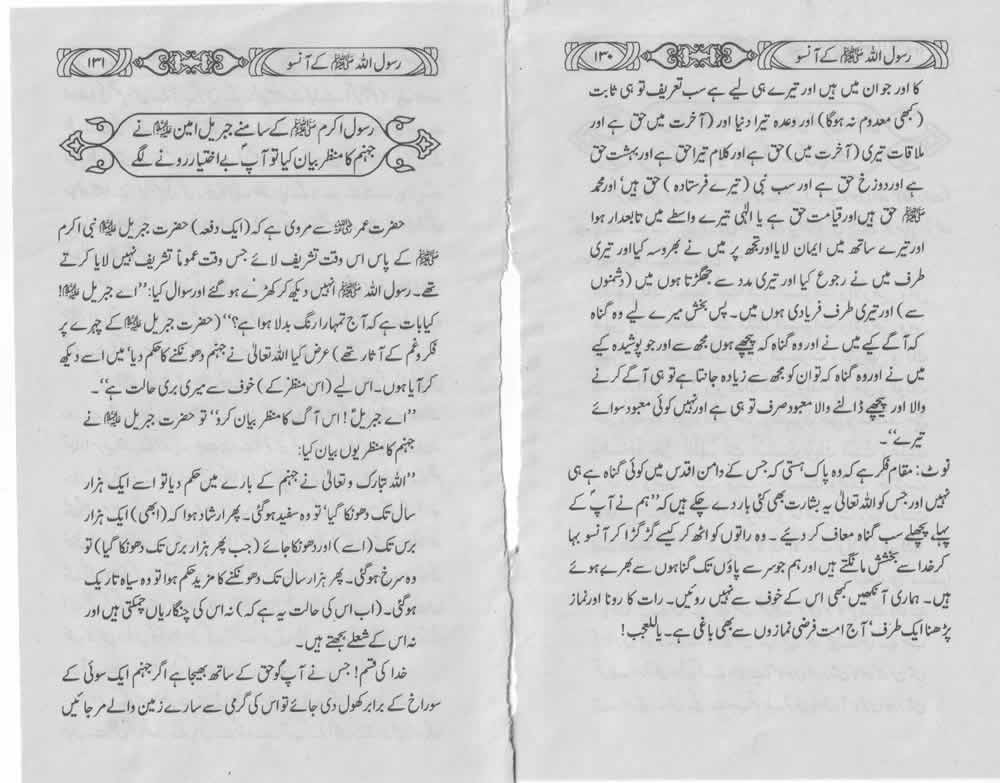 رسول اللہ ﷺ کے آنسو
۱۳۰
کا اور جو ان میں ہیں اور تیرے ہی لیے ہے سب تعریف تو ہی ثابت
(کبھی معدوم نہ ہوگا) اور وعدہ تیرا دنیا اور (آخرت میں حق ہے اور
ملاقات تیری (آخرت میں) حق ہے اور کلام تیرا حق ہے اور بہشت حق
ہے اور دوزخ حق ہے اور سب نبی (تیرے فرستادہ) حق ہیں‘ اور محمد
ﷺ حق ہیں اور قیامت حق ہے یا الٰہی تیرے واسطے میں تابعدار ہوا
اور تیرے ساتھ میں ایمان لایا اور تجھ پر میں نے بھروسہ کیا اور تیری
طرف میں نے رجوع کیا اور تیری مدد سے جھگڑتا ہوں میں (دشمنوں
سے) اور تیری طرف فریادی ہوں میں۔ پس بخش میرے لیے وہ گناہ
کہ آگے کیے میں نے اور وہ گناہ کہ پیچھے ہوں مجھ سے اور جو پوشیدہ کیے
میں نے اور وہ گناہ کہ تو ان کو مجھ سے زیادہ جانتا ہے تو ہی آگے کرنے
والا اور پیچھے ڈالنے والا معبود صرف تو ہی ہے اور نہیں کوئی معبود سوائے
تیرے‘‘۔
نوٹ: مقام فکر ہے کہ وہ پاک ہستی کہ جس کے دامن اقدس میں کوئی گناہ ہے ہی
نہیں اور جس کو اللہ تعالیٰ یہ بشارت بھی کئی بار دے چکے ہیں کہ ’’ہم نے آپؐ کے
پہلے پچھلے سب گناہ معاف کر دیئے۔ وہ راتوں کو اٹھ کر کیسے گڑ گڑا کر آنسو بہا
کر خدا سے بخشش مانگتے ہیں اور ہم جو سر سے پاؤں تک گناہوں سے بھرے ہوئے
ہیں۔ ہماری آنکھیں کبھی اس کے خوف سے نہیں روئیں۔ رات کا رونا اور نماز
پڑھنا ایک طرف‘ آج امت فرضی نمازوں سے بھی باغی ہے۔ یاللعجب!
رسول اللہ ﷺ کے آنسو
۱۳۱
رسول اکرم ﷺ کے سامنے جبریل امین علیہ السلام نے
جہنم کا منظر بیان کیا تو آپؐ بے اختیار رونے لگے
حضرت عمر رضی اللہ عنہ سے مروی ہے کہ (ایک دفعہ) حضرت جبریل علیہ السلام نبی اکرم
ﷺ کے پاس اس وقت تشریف لائے جس وقت عموماً تشریف نہیں لایا کرتے
تھے۔ رسول اللہ ﷺ انہیں دیکھ کر کھڑے ہو گئے اور سوال کیا: ’’اے جبریل علیہ السلام!
کیا بات ہے کہ آج تمہارا رنگ بدلا ہوا ہے؟‘‘ (حضرت جبریل علیہ السلام کے چہرے پر
فکر و غم کے آثار تھے) عرض کیا اللہ تعالیٰ نے جہنم دھونکنے کا حکم دیا‘ میں اسے دیکھ
کر آیا ہوں۔ اس لیے (اس منظر کے) خوف سے میری بری حالت ہے‘‘۔
’’اے جبریلؑ! اس آگ کا منظر بیان کرو‘‘ تو حضرت جبریل علیہ السلام نے
جہنم کا منظر یوں بیان کیا:
’’اللہ تبارک و تعالیٰ نے جہنم کے بارے میں حکم دیا تو اسے ایک ہزار
سال تک دھونکا گیا‘ تو وہ سفید ہوگئی۔ پھر ارشاد ہوا کہ (ابھی) ایک ہزار
برس تک (اسے) اور دھونکا جائے (جب پھر ہزار برس تک دھونکا گیا) تو
وہ سرخ ہوگئی۔ پھر ہزار سال تک دھونکنے کا مزید حکم ہوا تو وہ سیاہ تاریک
ہوگئی۔ (اب اس کی حالت یہ ہے کہ) نہ اس کی چنگاریاں چمکتی ہیں اور
نہ اس کے شعلے بجھتے ہیں۔
خدا کی قسم! جس نے آپؐ کو حق کے ساتھ بھیجا ہے اگر جہنم ایک سوئی کے
سوراخ کے برابر کھول دی جائے تو اس کی گرمی سے سارے زمین والے مر جائیں